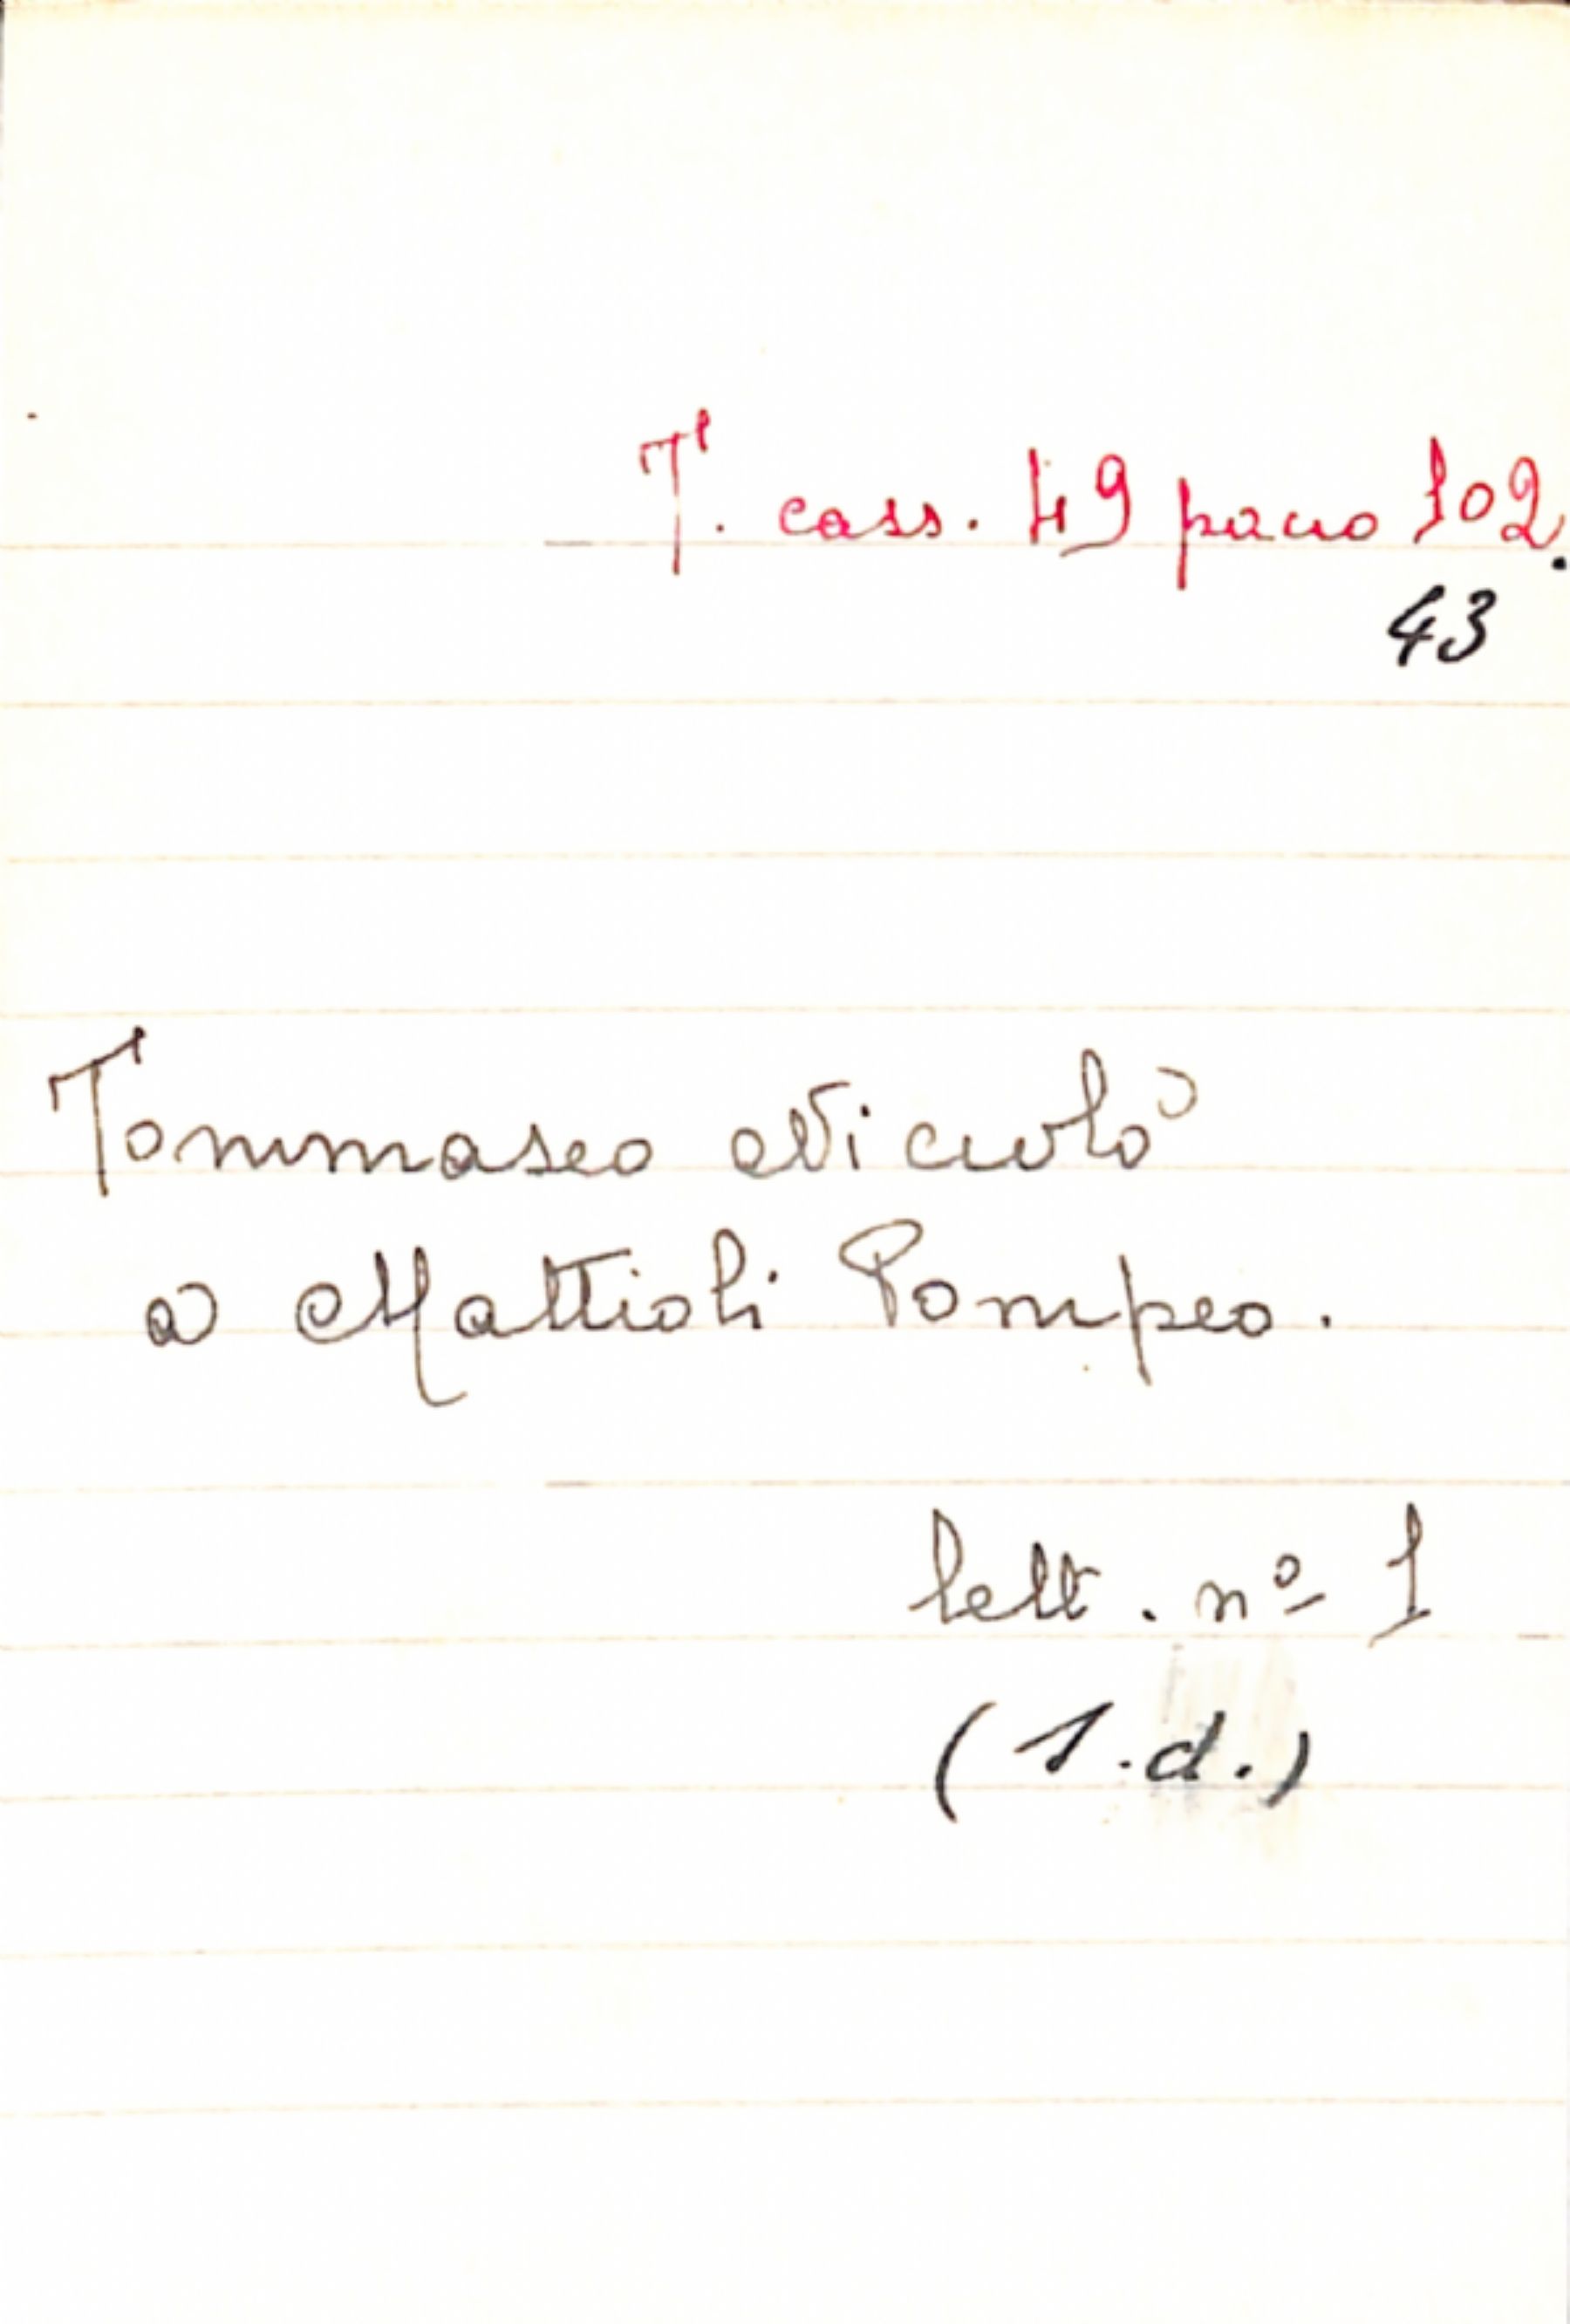 T. cass. 49 pacco 102.
43
Tommaseo Niccolò
a Mattioli Pompeo.
lett. nº 1
(s.d.)